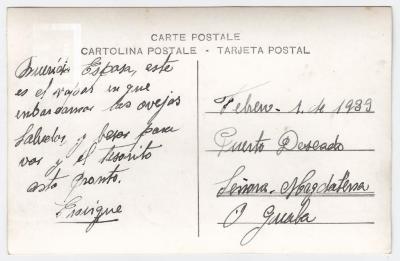 CARTE POSTALE
CARTOLINA POSTALE - TARJETA POSTAL
Querida Esposa, este
es el vapor in que
embarcamos las ovejas
Saludos y besos para
vos y el tesorito
asta pronto.
Enrique
Febero - 1. de 1939
Puerto Deseado
Señora - Magdalena
O